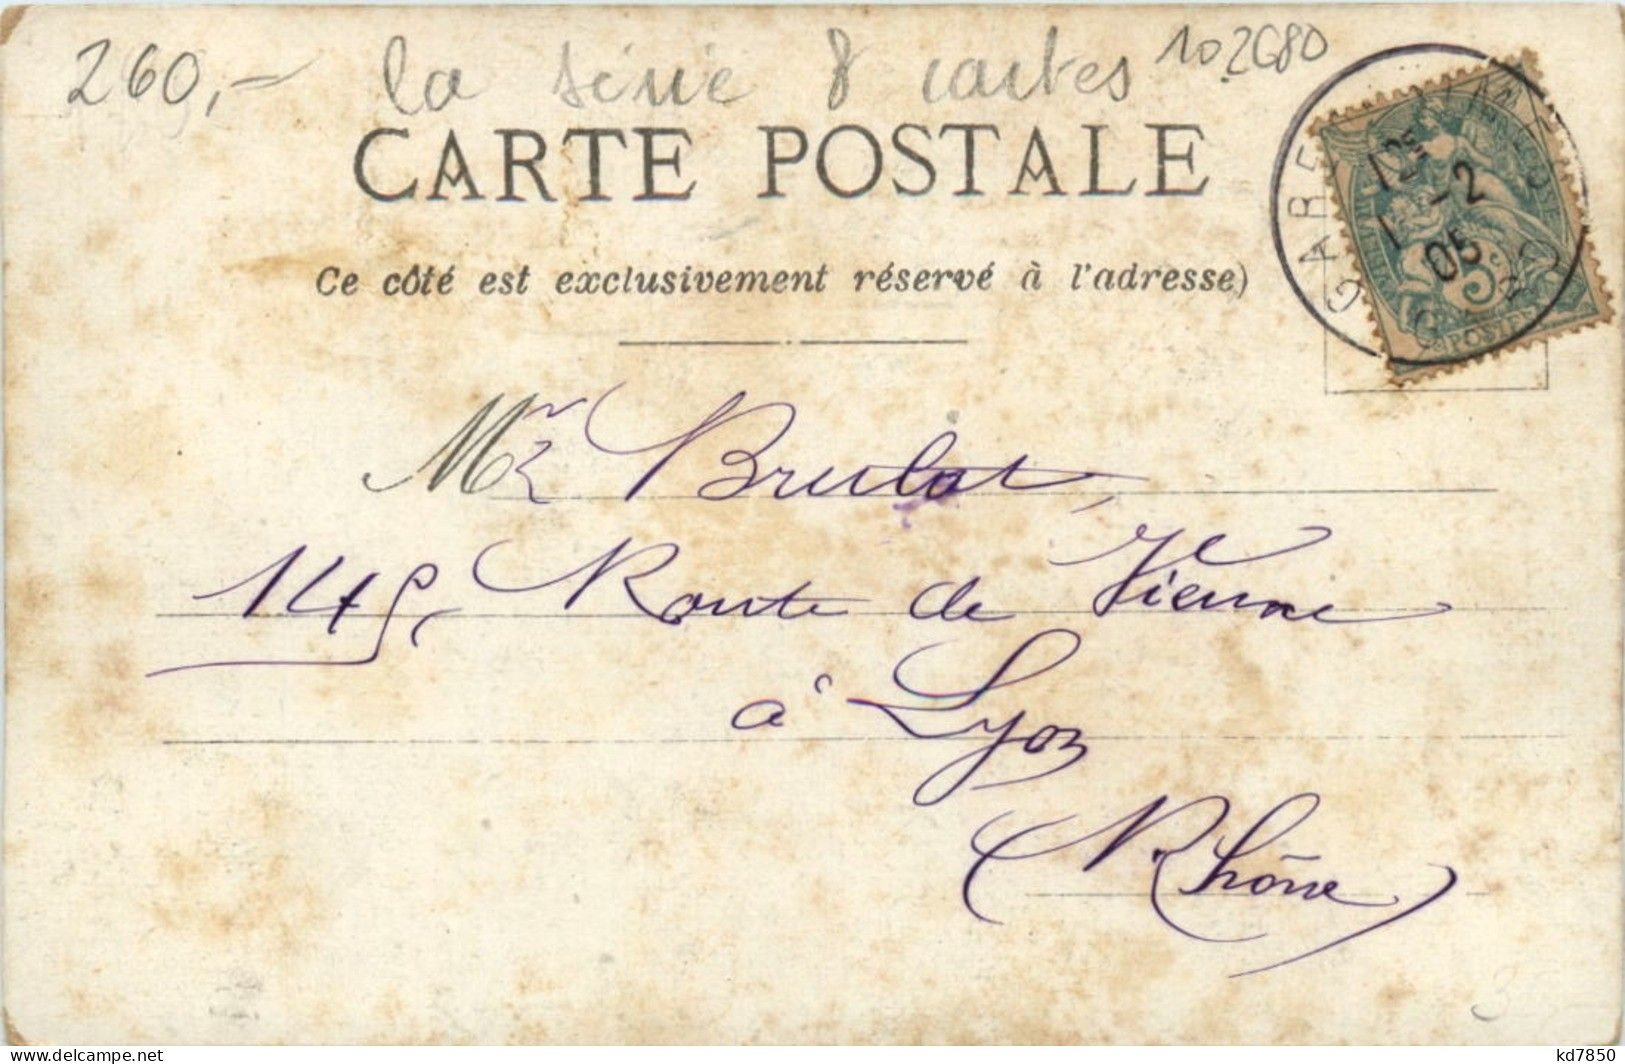 260,- la série 8 cartes 102680
CARTE POSTALE
Ce côté est exclusivement réservé à l'adresse)
GARE
12
1-2
05
5c
POSTES
Mr Brulat,
145, Route de Vienne
à Lyon
(Rhône)
3
delcampe.net
kd7850